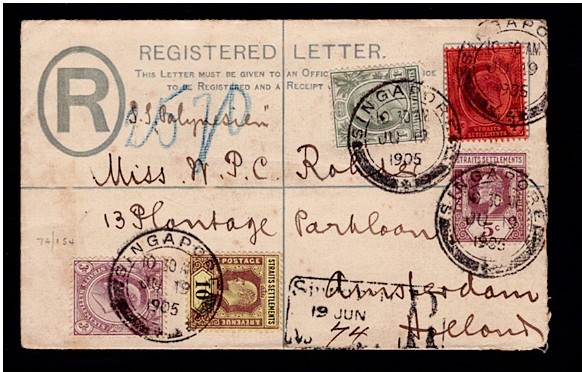 SINGAPORE
10 30 AM
1905
REGISTERED LETTER.
THIS LETTER MUST BE GIVEN TO AN OFFICE
TO BE REGISTERED AND A RECEIPT
R
2570
S.S. Polynesien
STRAITS SETTLEMENTS
SINGAPORE
10 30 AM
JU 19
1905
Miss W. P. C.
STRAITS SETTLEMENTS
5c
SINGAPORE
JU 19
1905
13 Plantage Parkloan
74/154
SINGAPORE
10 30 AM
JU 19
1905
POSTAGE
& REVENUE
STRAITS SETTLEMENTS
10c
19 JUN
R
74
Amsterdam
Holland